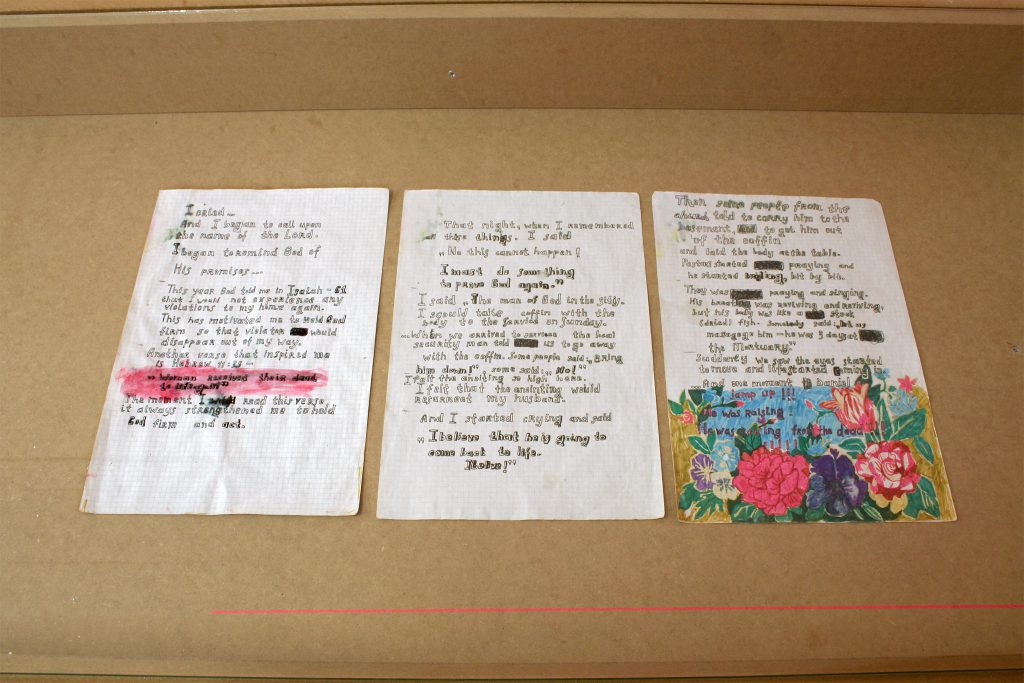 I cried...
And I began to call upon
the name of the Lord.
I began to remind God of
His promises...
This year God told me in Isaiah -
that I would not experience any
violations to my home again.
This has motivated me to hold God
firm so that violator would
disappear out of my way.
Another verse that inspired me
is Hebrew 11:35 -
„Woman received their dead
to
The moment I read this verse
it always strengthened me to hold
God firm and act.
That night, when I remembered
on these things. I said
„No this cannot happen!
I must do something
to prove God again.”
I said „The man of God in the city.
I should take coffin with the
body to the Service on Sunday.
When we arrived to service the head
security man told us to go away
with the coffin. Some people said: „Bring
him down!” some said: „No!”
I felt the anointing so high here.
I felt that the anointing would
my husband.
And I started crying and said
„I believe that he is going to
come back to life.
Then some people from the
church, told to carry him to the
basement and to get him out
of the coffin
and laid the body at the table.
Pastors started praying and
he started bit by bit.
They was praying and singing.
His was reviving and reviving,
but his body was like a stock
(dried) fish. Somebody said: „
him – he was 3 days at
the Mortuary”
Suddenly we saw the eyes started
to move and life started coming in
...And one moment to Daniel
jump up !!!
He was Raising -
He was from the dead